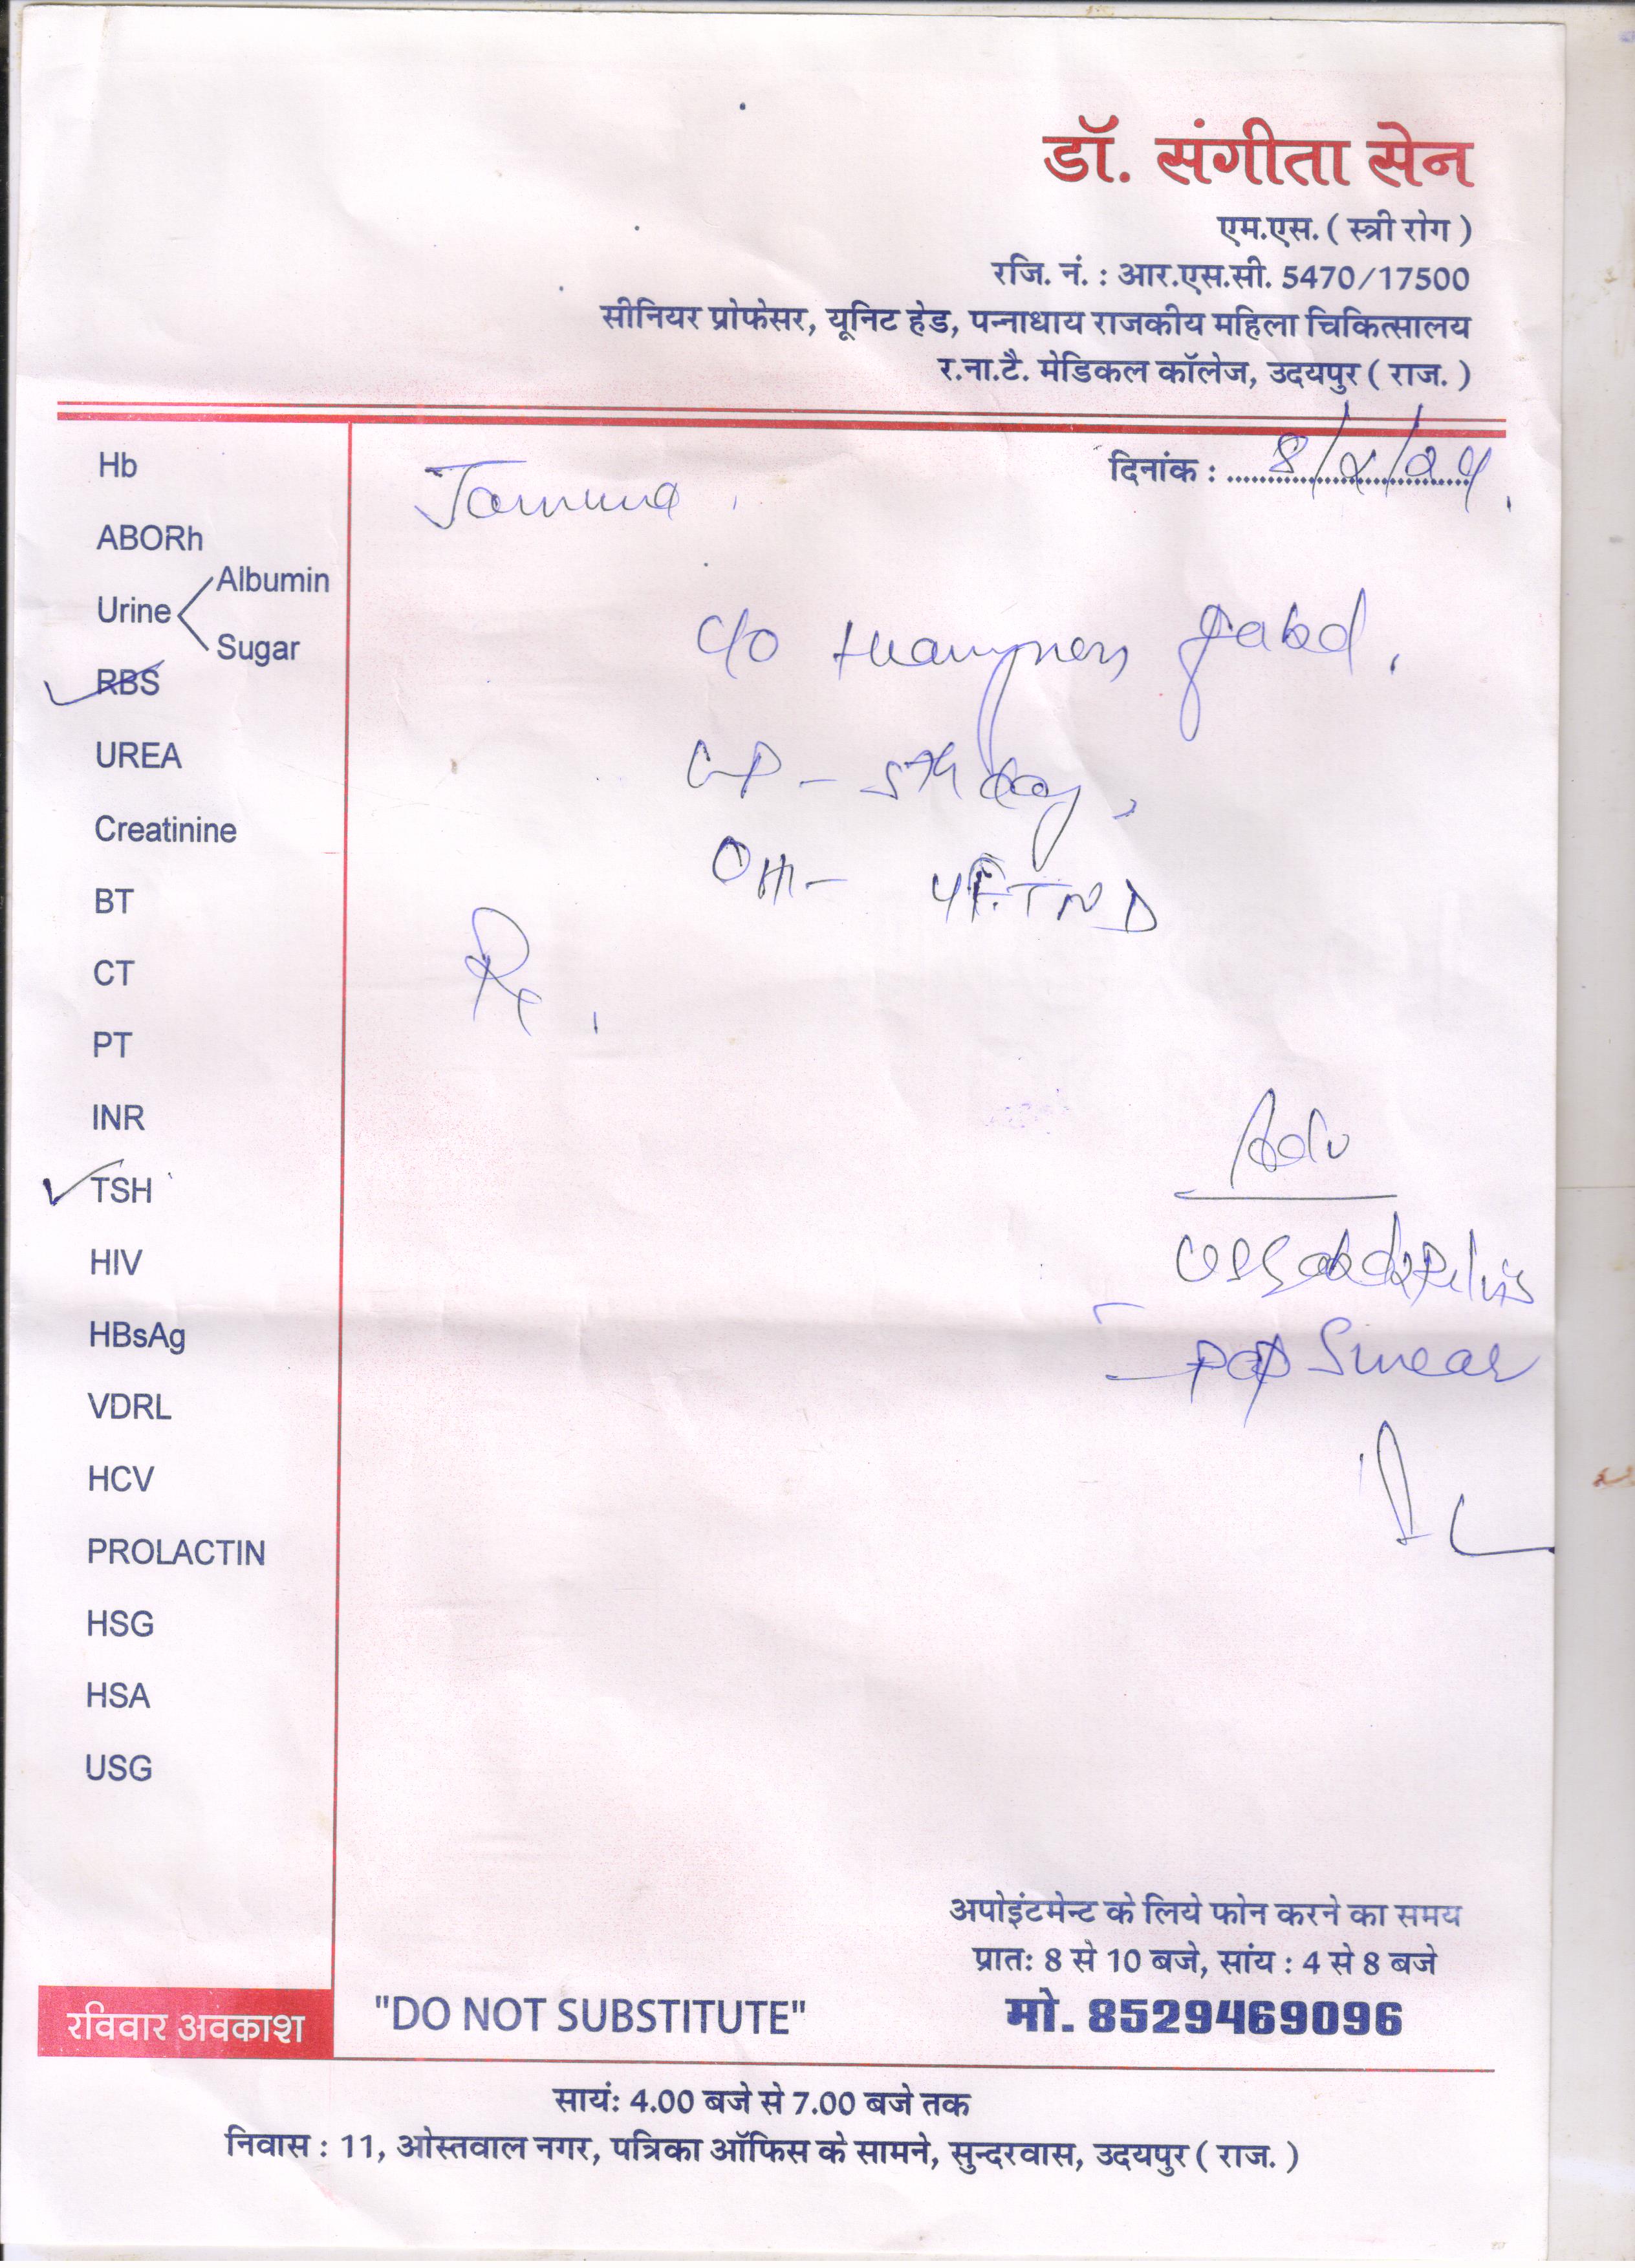 डॉ. संगीता सेन
एम.एस. ( स्त्री रोग )
रजि. नं. : आर.एस.सी. 5470/17500
सीनियर प्रोफेसर, यूनिट हेड, पन्नाधाय राजकीय महिला चिकित्सालय
र.ना.टै. मेडिकल कॉलेज, उदयपुर ( राज. )
दिनांक :
Jamuna
Hb
ABORh
Urine
Albumin
Sugar
RBS
UREA
Creatinine
BT
CT
PT
INR
TSH
HIV
HBsAg
VDRL
HCV
PROLACTIN
HSG
HSA
USG
C/o heavyness
- 5th day
OH - 4FTND
Rx
Adv
USG abd & Pelvis
- Pap Smear
अपोइंटमेन्ट के लिये फोन करने का समय
प्रात: 8 से 10 बजे, सांय : 4 से 8 बजे
मो. 8529469096
रविवार अवकाश
"DO NOT SUBSTITUTE"
सायं: 4.00 बजे से 7.00 बजे तक
निवास : 11, ओस्तवाल नगर, पत्रिका ऑफिस के सामने, सुन्दरवास, उदयपुर ( राज. )